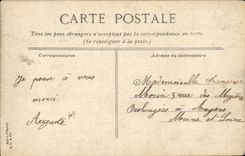 CARTE POSTALE
Tous les pays étrangers n'acceptent pas la correspondance au recto.
(Se renseigner à la poste)
Correspondance
Adresse du destinataire
Je pense à vous
merci
Mademoiselle
Morin 5 rue des
à Angers
Maine et Loire